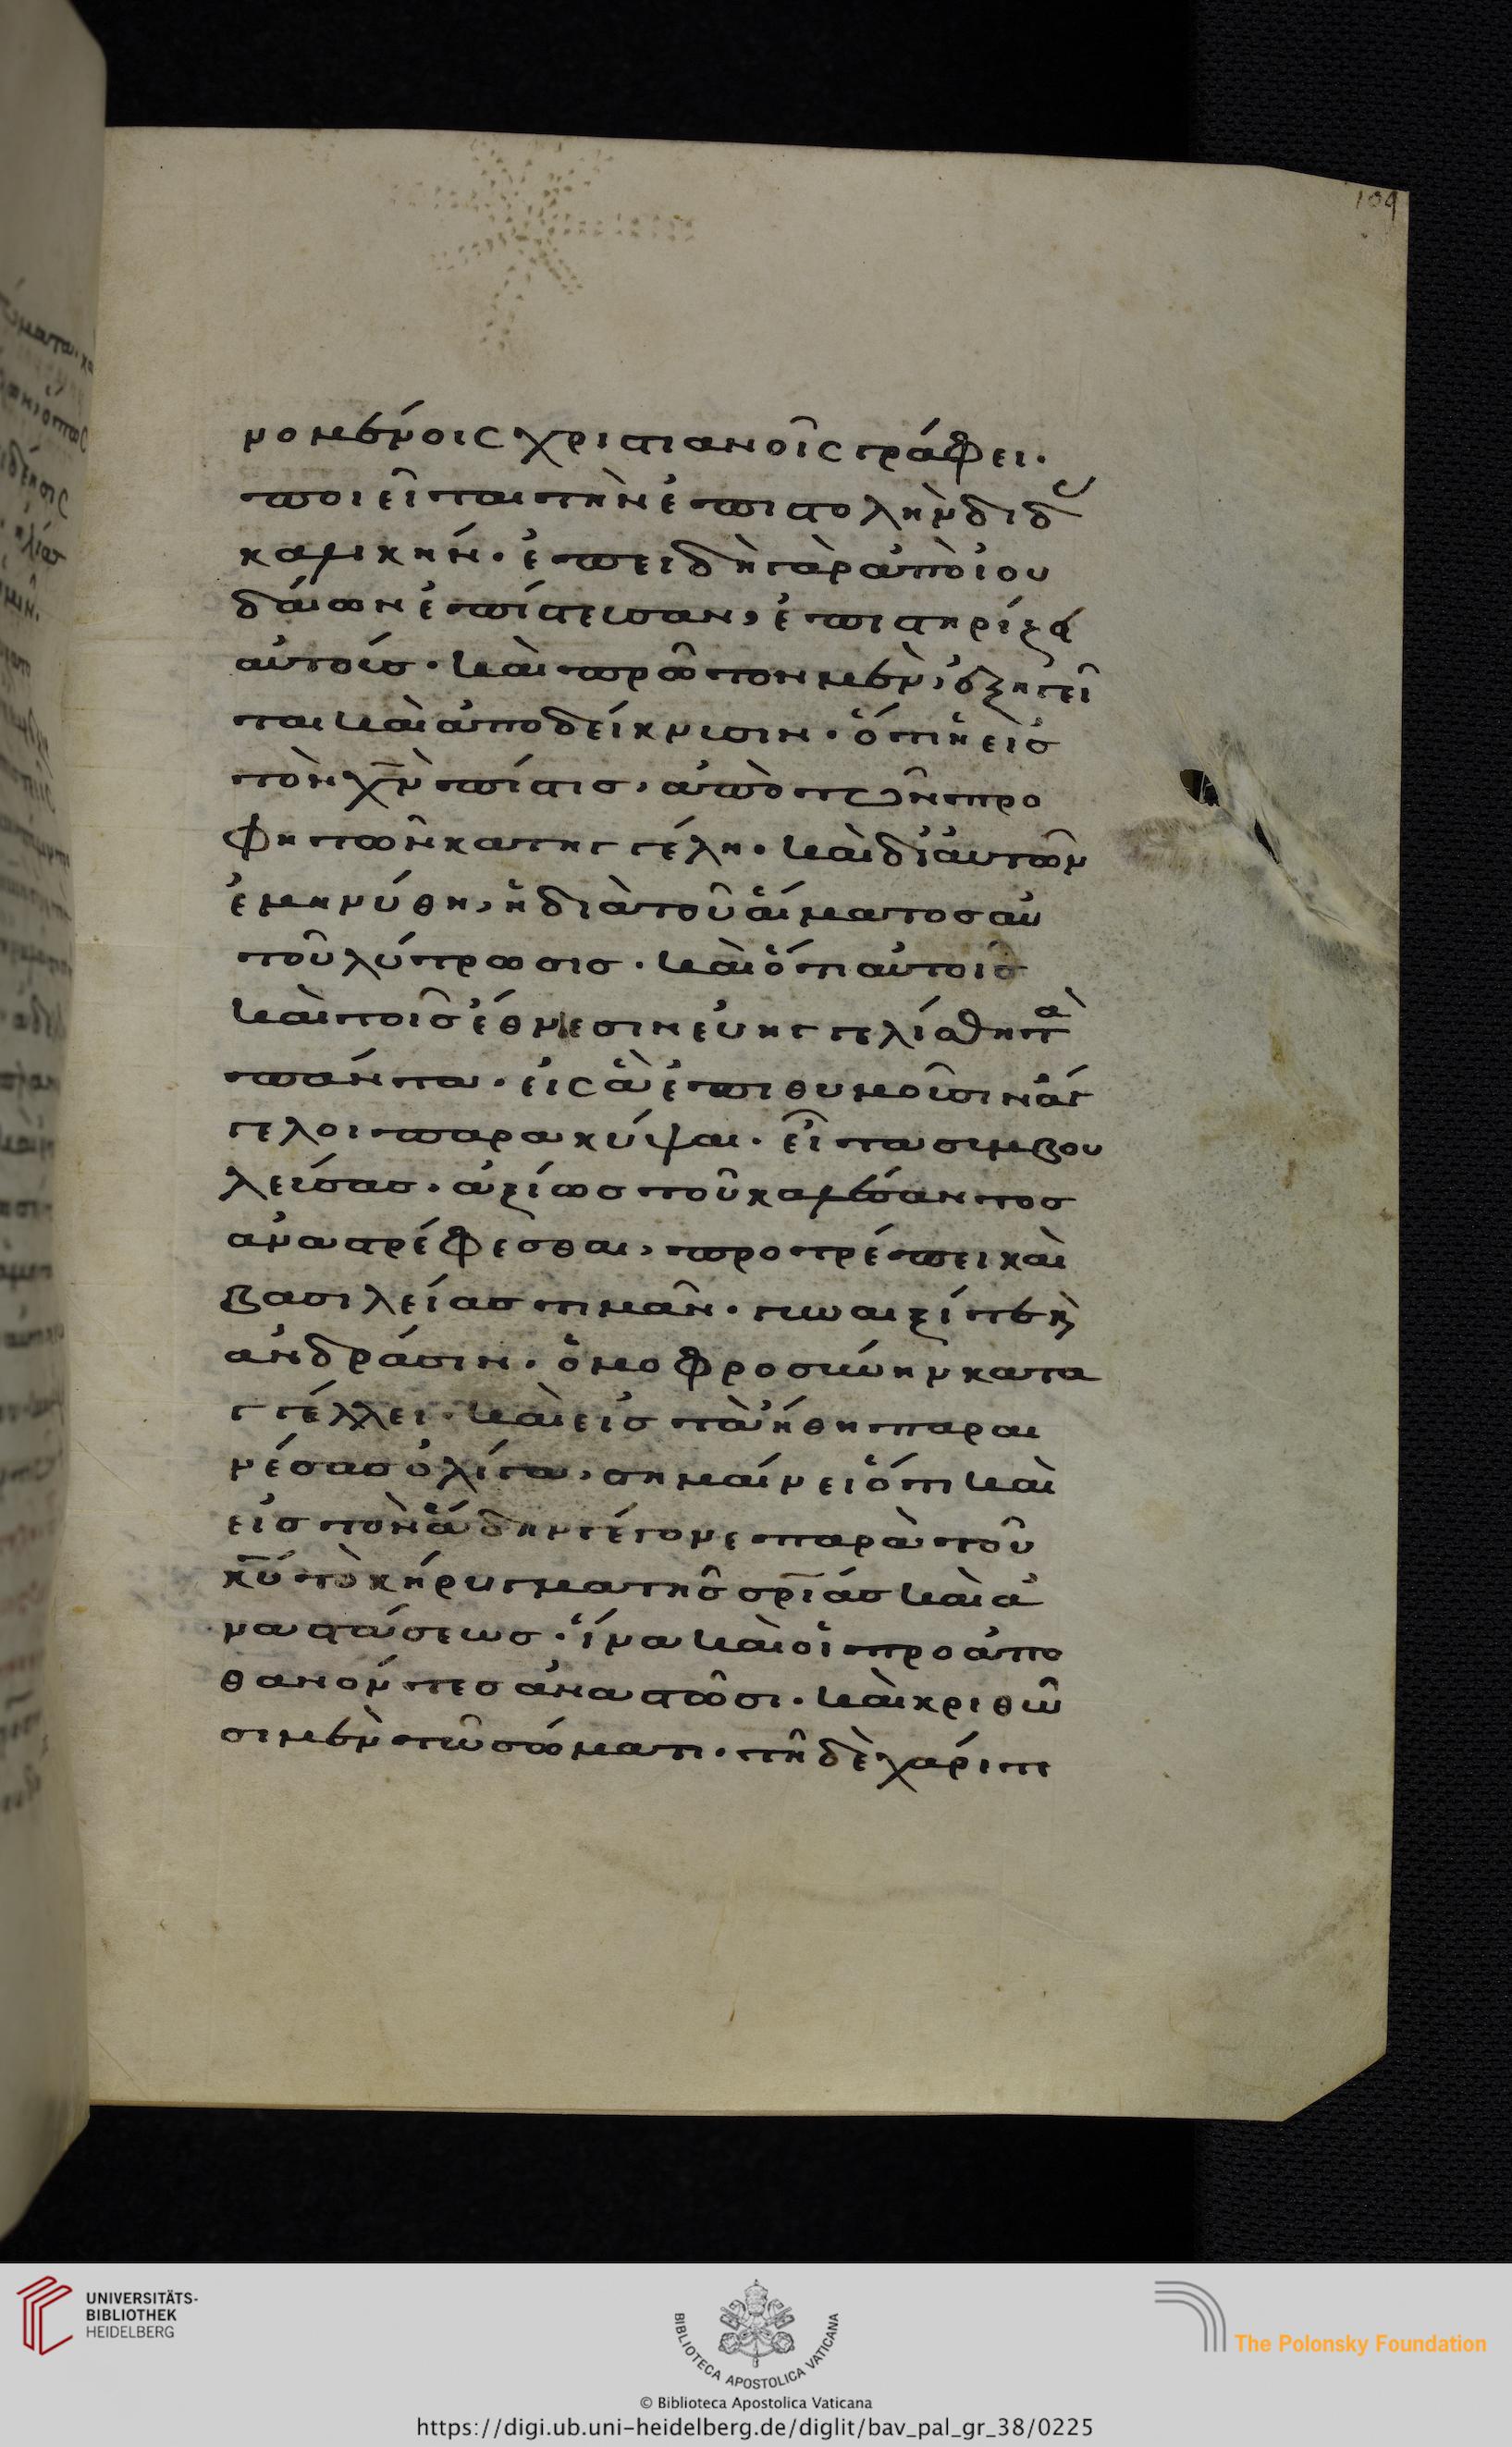 109
νομένοις χριστιανοῖς γράφει·
ποιεῖται τὴν ἐπιστολὴν διδ
καλικήν· ἐπειδὴ γὰρ ἀπὸ ἰου
δαίων ἐπίστευσαν, ἐπιστηρίζει
αὐτούς· καὶ πρῶτον μὲν, ἐξηγεῖ
ται καὶ ἀποδείκνυσιν· ὅτι ἡ εἰς
τὸν χν πίστις, ἀπὸ τῶν προ
φητῶν κατηγγέλη· καὶ δι' αὐτῶν
ἐμηνύθη, ἡ διὰ τοῦ αἵματος αὐ
τοῦ λύτρωσις· καὶ ὅτι αὐτοῖς
καὶ τοῖς ἔθνεσιν εὐηγγελίσθη τὰ
πάντα· εἰς ἃ ἐπιθυμοῦσιν ἄγ
γελοι παρακύψαι· εἶτα συμβου
λεύσας· ἀξίως τοῦ καλέσαντος
ἀναστρέφεσθαι, προτρέπει καὶ
βασιλείας τιμᾶν· γυναιξί τε κ
ἀνδράσιν· ὁμοφροσύνην κατα
γγέλλει· καὶ εἰς τὰ ἤθη παραι
νέσας ὀλίγα, σημαίνει ὅτι καὶ
εἰς τὸν ἅδην γέγονε παρὰ τοῦ
κυ τὸ κήρυγμα τῆς σριας καὶ ἀ
ναστάσεως· ἵνα καὶ οἱ προαπο
θανόντες ἀναστῶσι· καὶ κριθῶ
σι μὲν τῷ σώματι· τῇ δὲ χάριτι
UNIVERSITÄTS-
BIBLIOTHEK
HEIDELBERG
BIBLIOTECA APOSTOLICA VATICANA
The Polonsky Foundation
© Biblioteca Apostolica Vaticana
https://digi.ub.uni-heidelberg.de/diglit/bav_pal_gr_38/0225